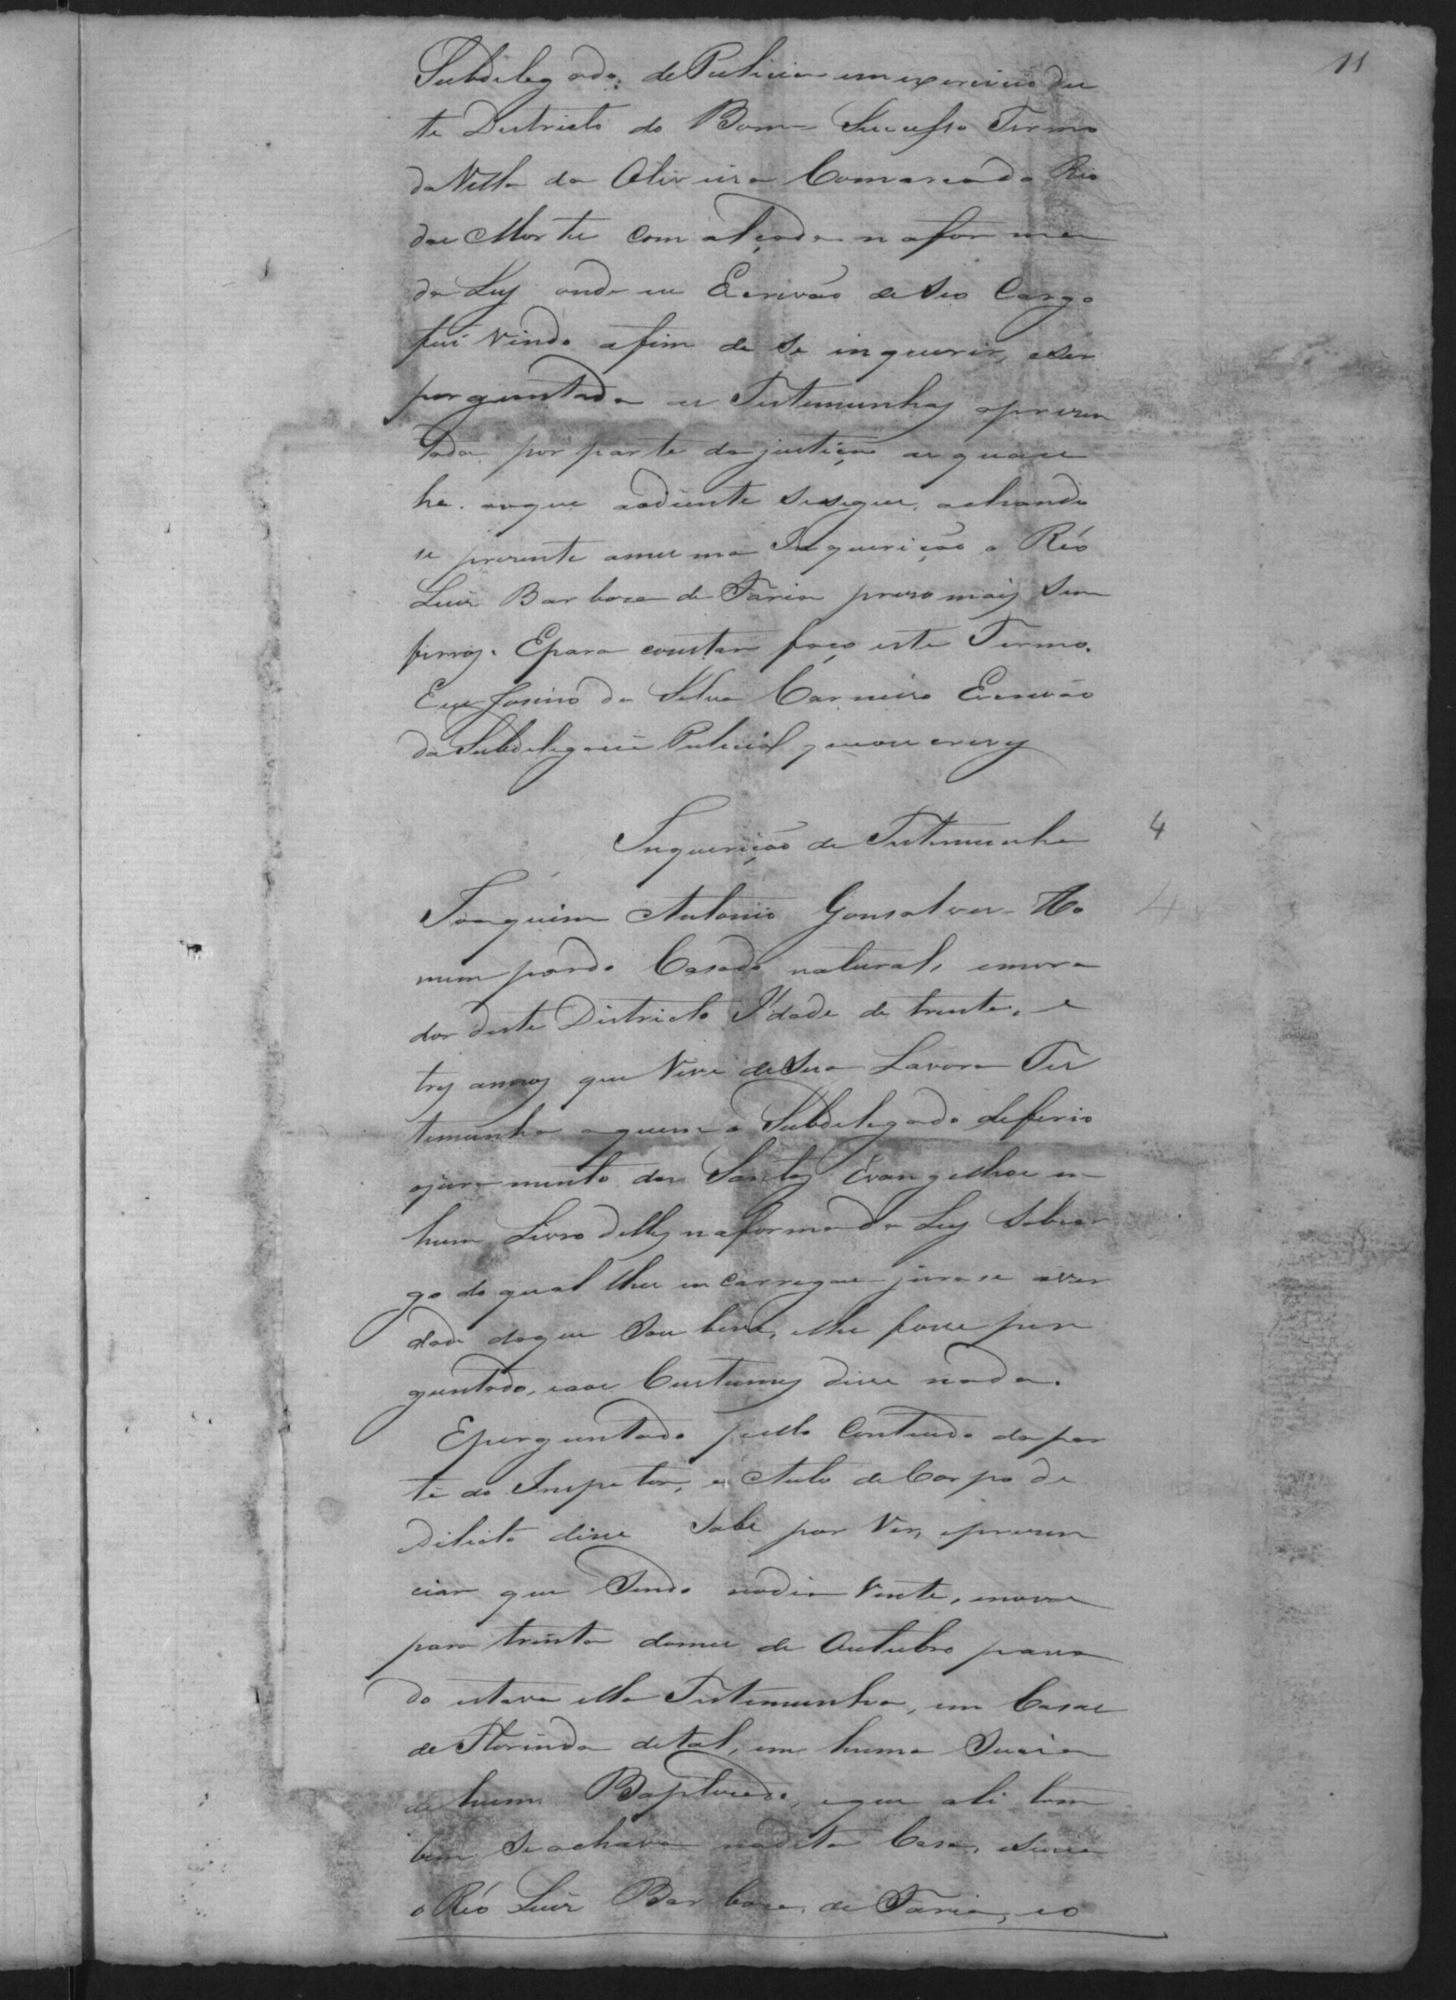 11
Subdelegado de Policia em exercicio des
te Districto do Bom Sucesso Termo
da Villa da Oliveira Comarca do Rio
das Mortes com alçada na forma
da Ley onde eu Escrivão de seo Cargo
fui vindo afim de se inquerir, e ser
perguntada as Testemunhas aprezen
tada por parte da justiça as quaes
he. oque adiente se segue, achando
se prezente a mesma Inquerição o Réo
Luiz Barboza de Faria prezo mais sem
ferros. E para constar faço este Termo.
Eu Josino da Silva Carneiro Escrivão
da Subdelegacia Policial que escrevy
Inquerição de Testemunha
4
Joaquim Antonio Gonsalves Ho
mem pardo Casado natural, e mora
dor deste Districto Idade de trinta, e
tres annos que Vive de Sua Lavora Tes
temunha a quem o Subdelegado deferio
o juramento dos Santos Evangelhos em
hum Livro delles na forma da Ley sobcar
go do qual lhe encarregou jurase a ver
dade do que Soubese, e lhe fosse per
guntado, e aos Custumes disse nada.
E perguntado pello Contiudo da par
te do Inspetor, e Auto de Corpo de
Dilicto disse Sabe por Ver, e prezen
ciar que Sendo no dia Vinte, e nove
para trinta do mes de Outubro passa
do estava elle Testemunha, em Casa
de Florinda de tal, em huma Sucia
de hum Baptizado, e que ali tam
bem se achava na dita Casa, e Sucia
o Réo Luiz Barboza de Faria, e o